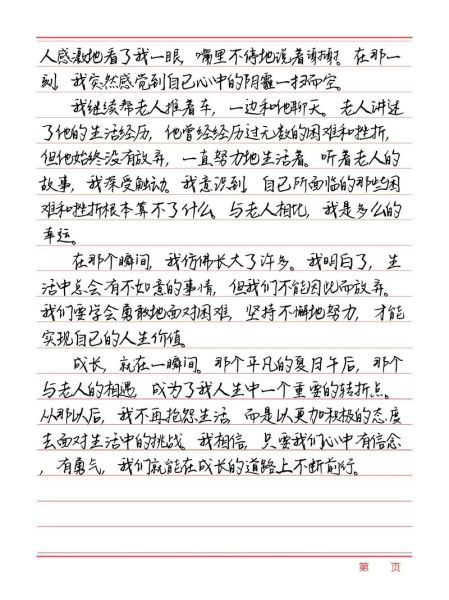 人感激地看了我一眼，嘴里不停地说着谢谢。在那一
刻，我突然感觉到自己心中的阴霾一扫而空。
我继续帮老人推着车，一边和他聊天。老人讲述
了他的生活经历，他曾经经历过无数的困难和挫折，
但他始终没有放弃，一直努力地生活着。听着老人的
故事，我深受触动。我意识到，自己所面临的那些困
难和挫折根本算不了什么。与老人相比，我是多么的
幸运。
在那个瞬间，我仿佛长大了许多。我明白了，生
活中总会有不如意的事情，但我们不能因此而放弃。
我们要学会勇敢地面对困难，坚持不懈地努力，才能
实现自己的人生价值。
成长，就在一瞬间。那个平凡的夏日午后，那个
与老人的相遇，成为了我人生中一个重要的转折点。
从那以后，我不再抱怨生活，而是以更加积极的态度
去面对生活中的挑战。我相信，只要我们心中有信念
，有勇气，我们就能在成长的道路上不断前行。
第 页